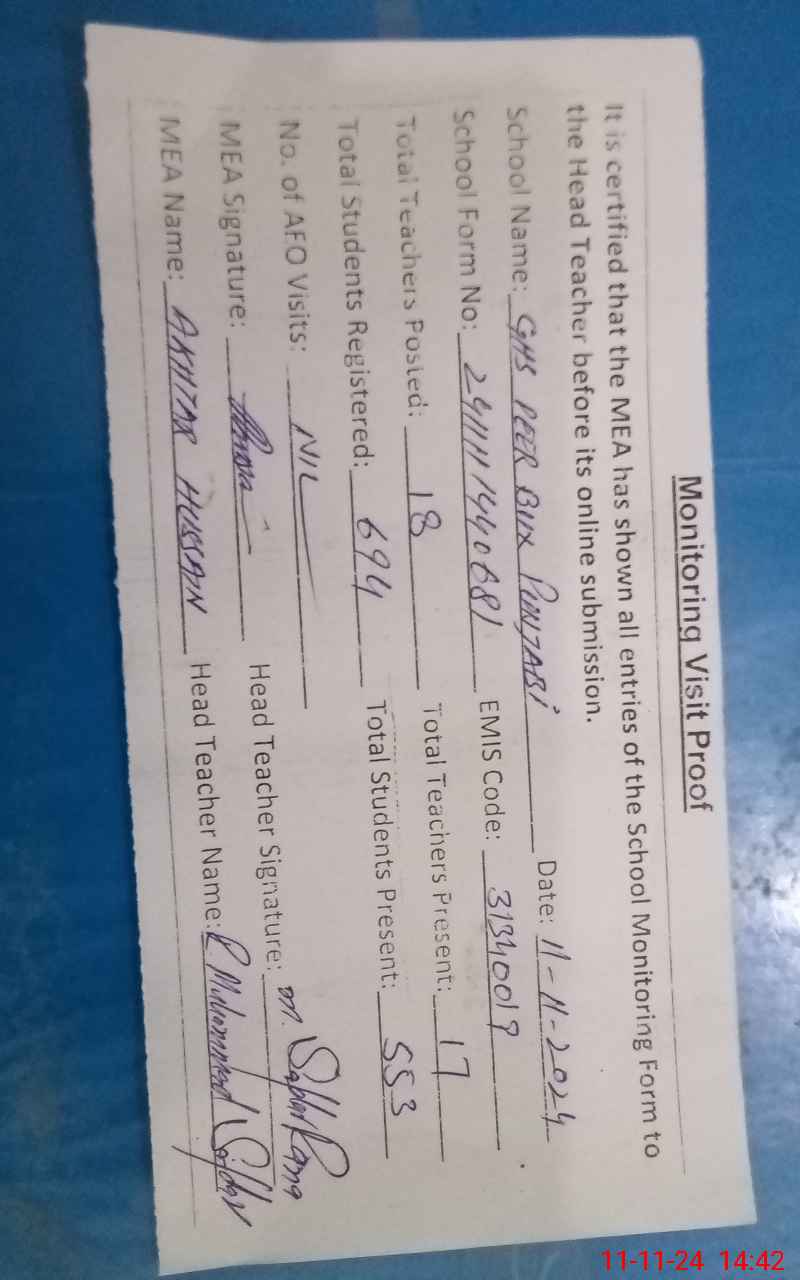 Monitoring Visit Proof
It is certified that the MEA has shown all entries of the School Monitoring Form to
the Head Teacher before its online submission.
School Name: GHS PEER BUX PUNJABI Date: 11-11-2024
School Form No: EMIS Code: 31340019
Total Teachers Posted: 18 Total Teachers Present: 17
Total Students Registered: 694 Total Students Present: 553
No. of AFO Visits: NIL
MEA Signature: Head Teacher Signature: M.
MEA Name: AKHTAR HUSSAIN Head Teacher Name: R. Muhammad
11-11-24 14:42